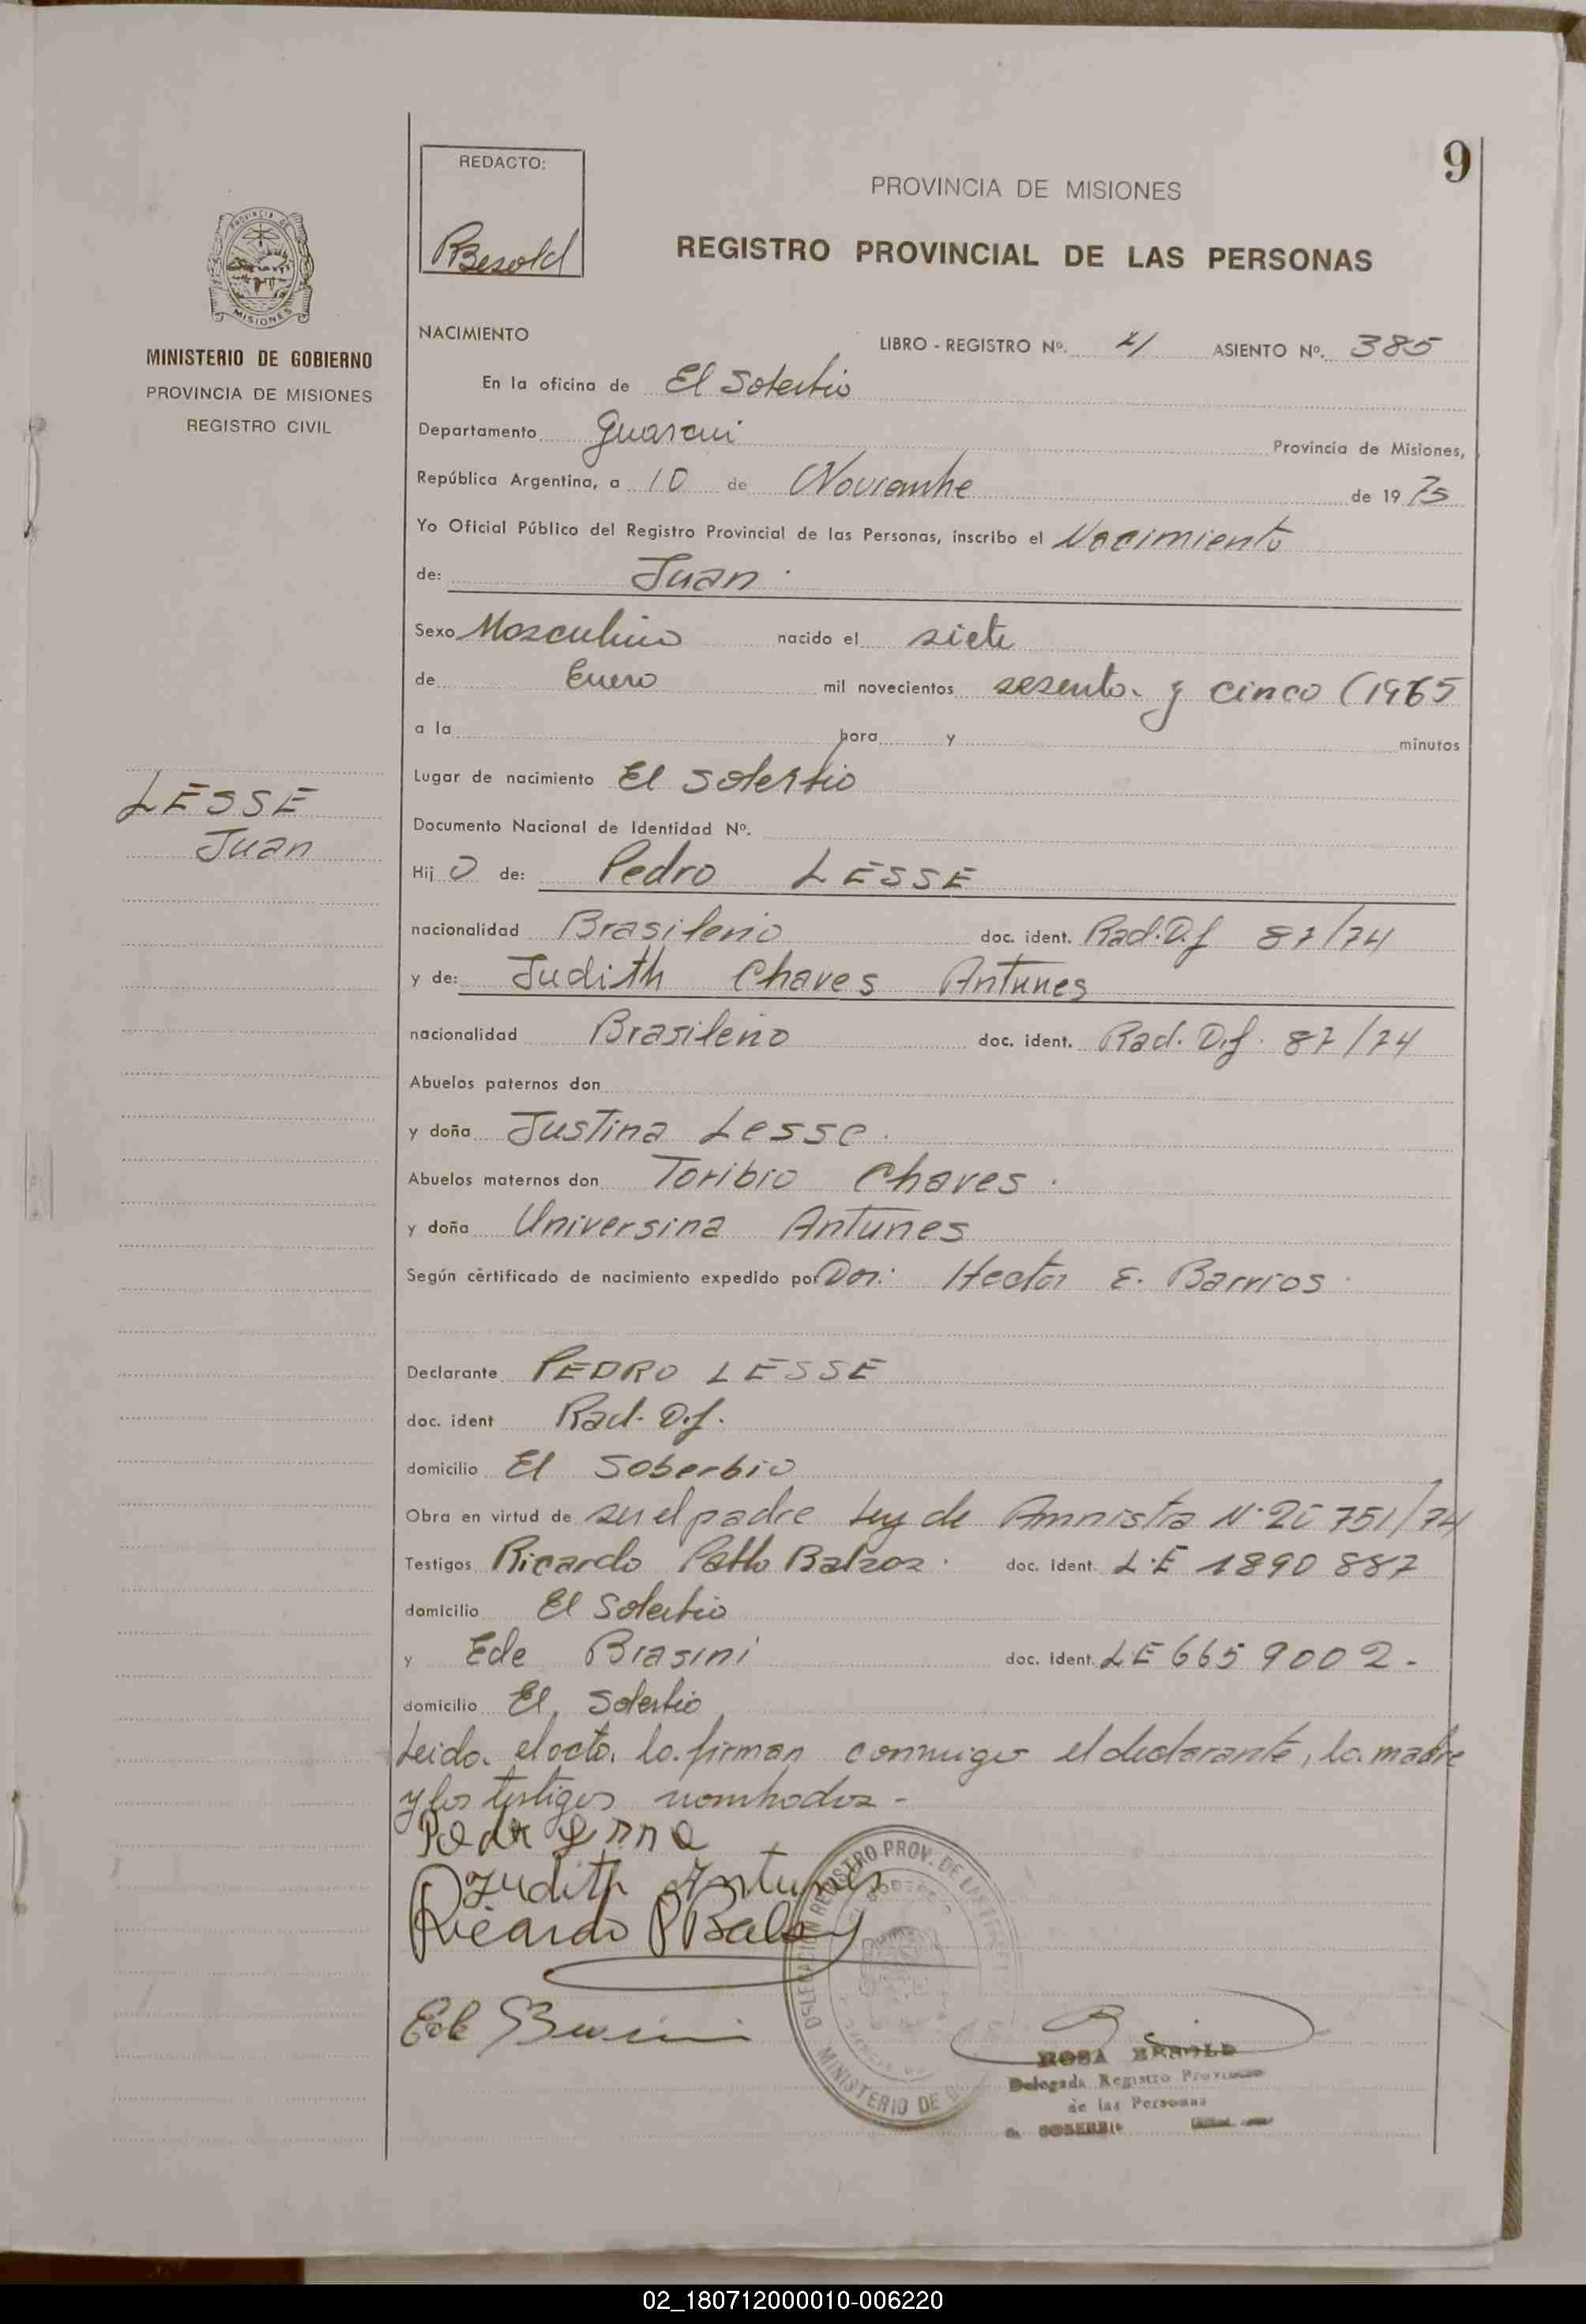 9
REDACTO:
RBesold
PROVINCIA DE MISIONES
REGISTRO PROVINCIAL DE LAS PERSONAS
PROVINCIA DE
MISIONES
MINISTERIO DE GOBIERNO
PROVINCIA DE MISIONES
REGISTRO CIVIL
NACIMIENTO
LIBRO - REGISTRO Nº. ASIENTO Nº. 385
En la oficina de El Soberbio
Departamento Guarani Provincia de Misiones,
República Argentina, a 10 de Noviembre de 1975
Yo Oficial Público del Registro Provincial de las Personas, inscribo el Nacimiento
de: Juan.
Sexo Masculino nacido el siete
de Enero mil novecientos sesenta y cinco (1965
a la hora y minutos
Lugar de nacimiento El Soberbio
LESSE
Juan
Documento Nacional de Identidad Nº.
Hijo de: Pedro LESSE
nacionalidad Brasileño doc. ident. Rad. D.f 87/74
y de: Judith Chaves Antunes
nacionalidad Brasileño doc. ident. Rad. D.f. 87/74
Abuelos paternos don
y doña Justina Lesse.
Abuelos maternos don Toribio Chaves.
y doña Universina Antunes
Según certificado de nacimiento expedido por Dor. Hector E. Barrios.
Declarante PEDRO LESSE
doc. ident Rad. D.f.
domicilio El Soberbio
Obra en virtud de ser el padre Ley de Amnistia Nº 20751/74
Testigos Ricardo Pablo doc. ident. L.E 1890 887
domicilio El Soberbio
y Ede Brasini doc. ident. LE 665 9002-
domicilio El Soberbio
Leida el acta, la firman conmigo el declarante, la madre
y los testigos nombrados-
Judith Antunes
Ricardo P
Ede
DELEGACION REGISTRO PROV. DE LAS
MINISTERIO DE
ROSA BESOLD
Delegada Registro Provincial
de las Personas
SOBERBIO
02_180712000010-006220